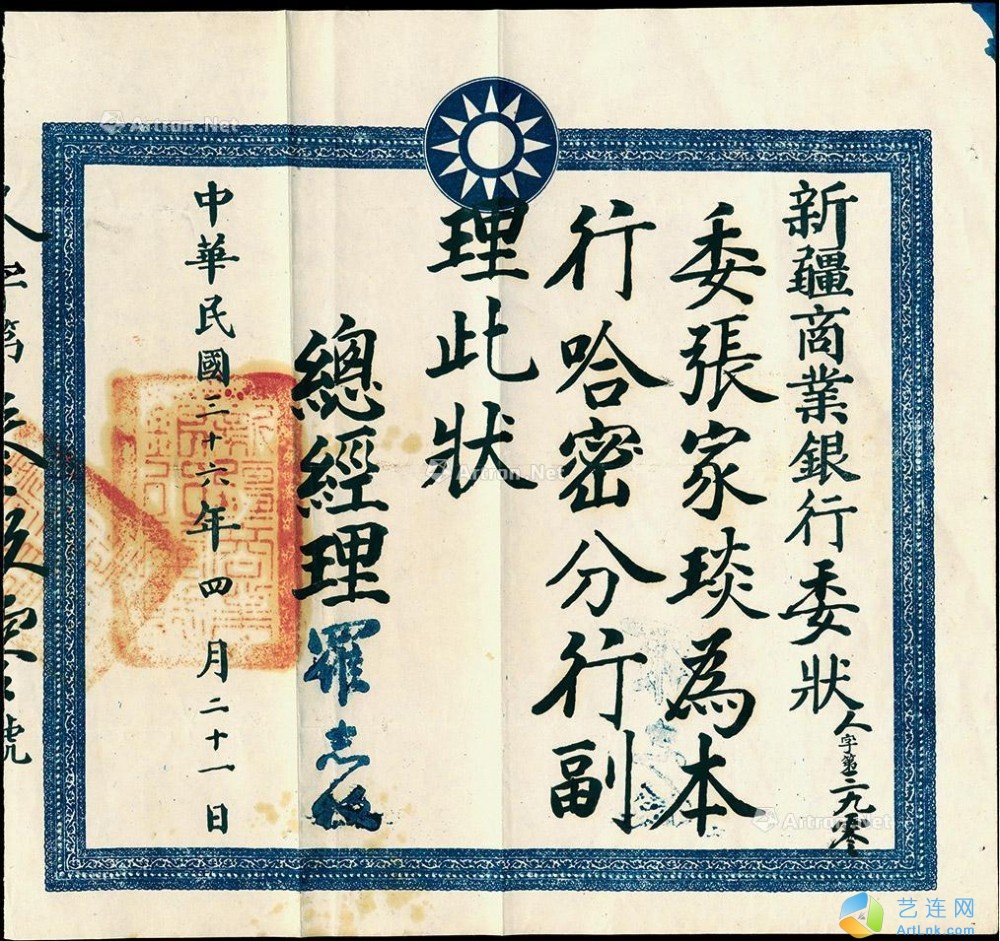 新疆商業銀行委狀
人字第二九零
委張家琰為本
行哈密分行副
理此狀
總經理羅志
中華民國三十六年四月二十一日
人字第 號
Artron.Net
Artron.Net
Artron.Net
艺连网
ArtLnk.com